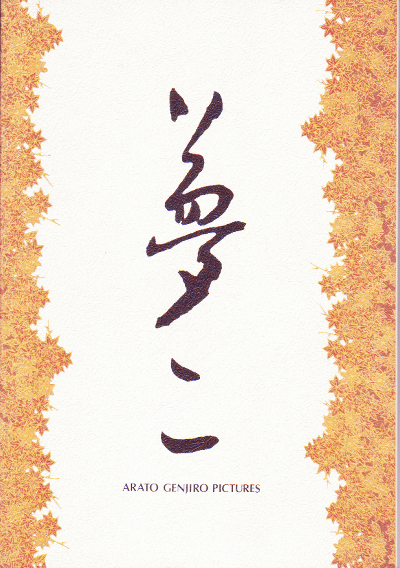 夢二
ARATO GENJIRO PICTURES